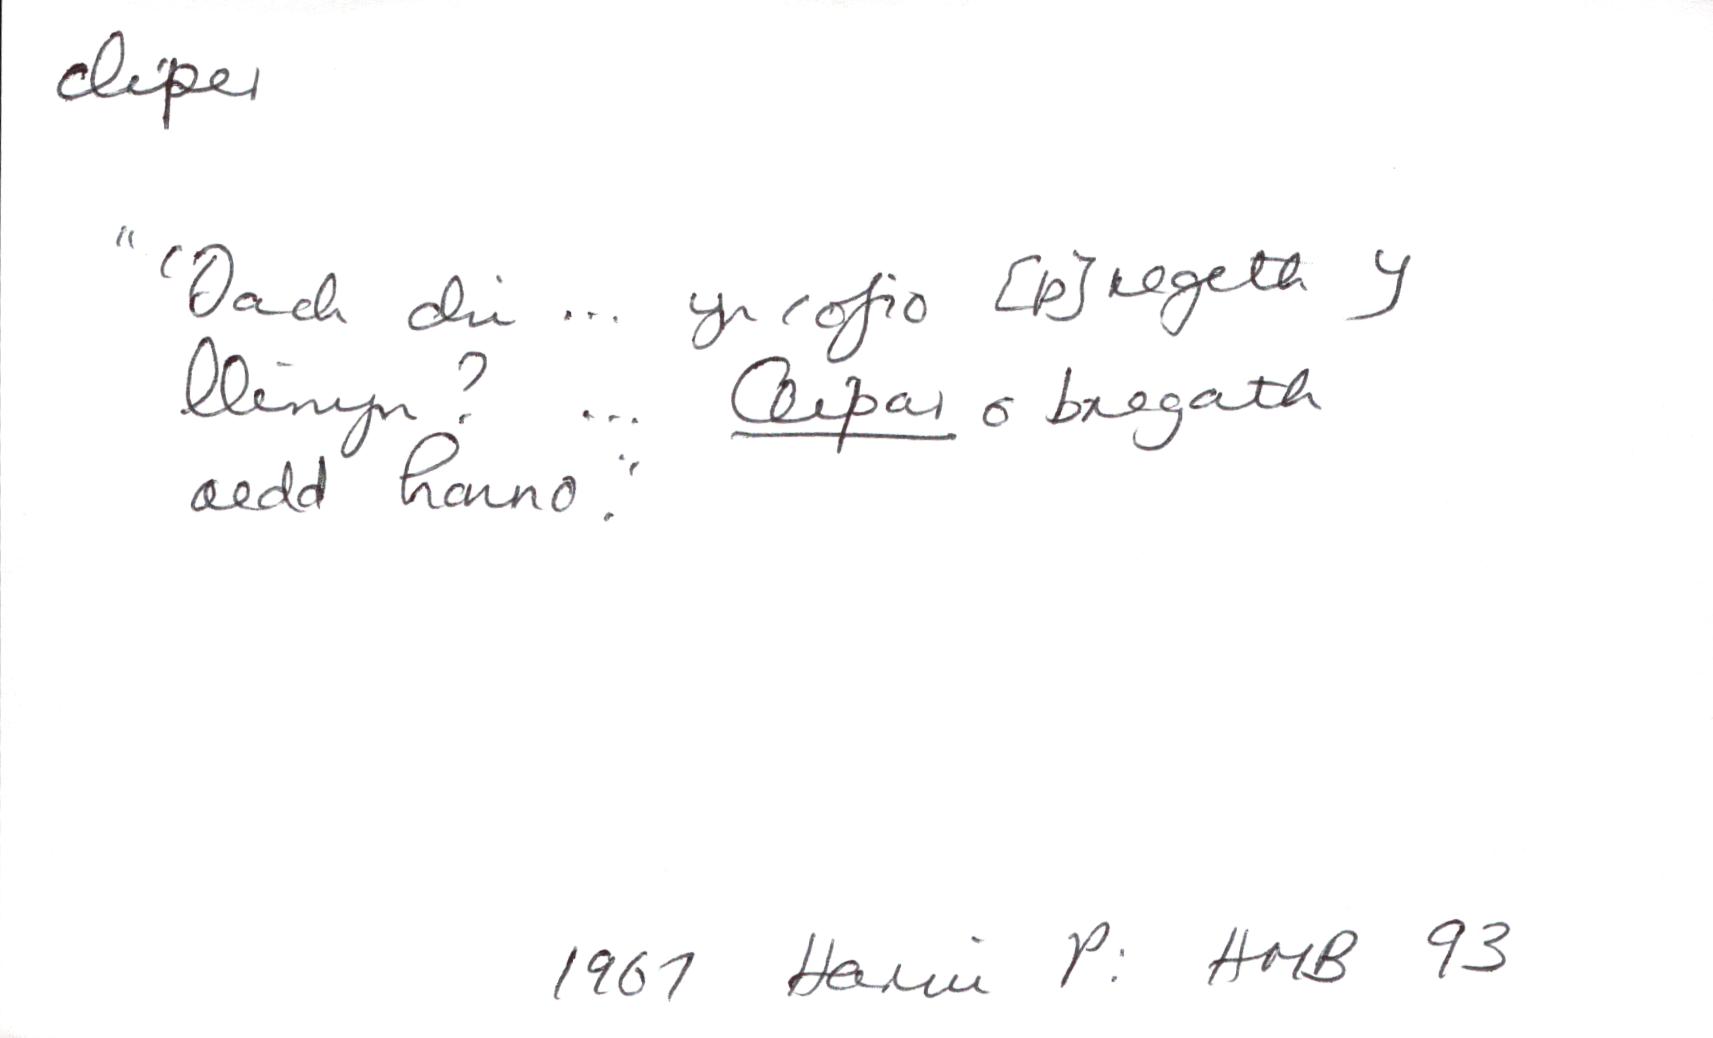 cliper
"'Dach chi ... yn cofio [p]regeth y
llinyn? ... Clipar o bregath
oedd honno."
1967 Harri P: HMB 93